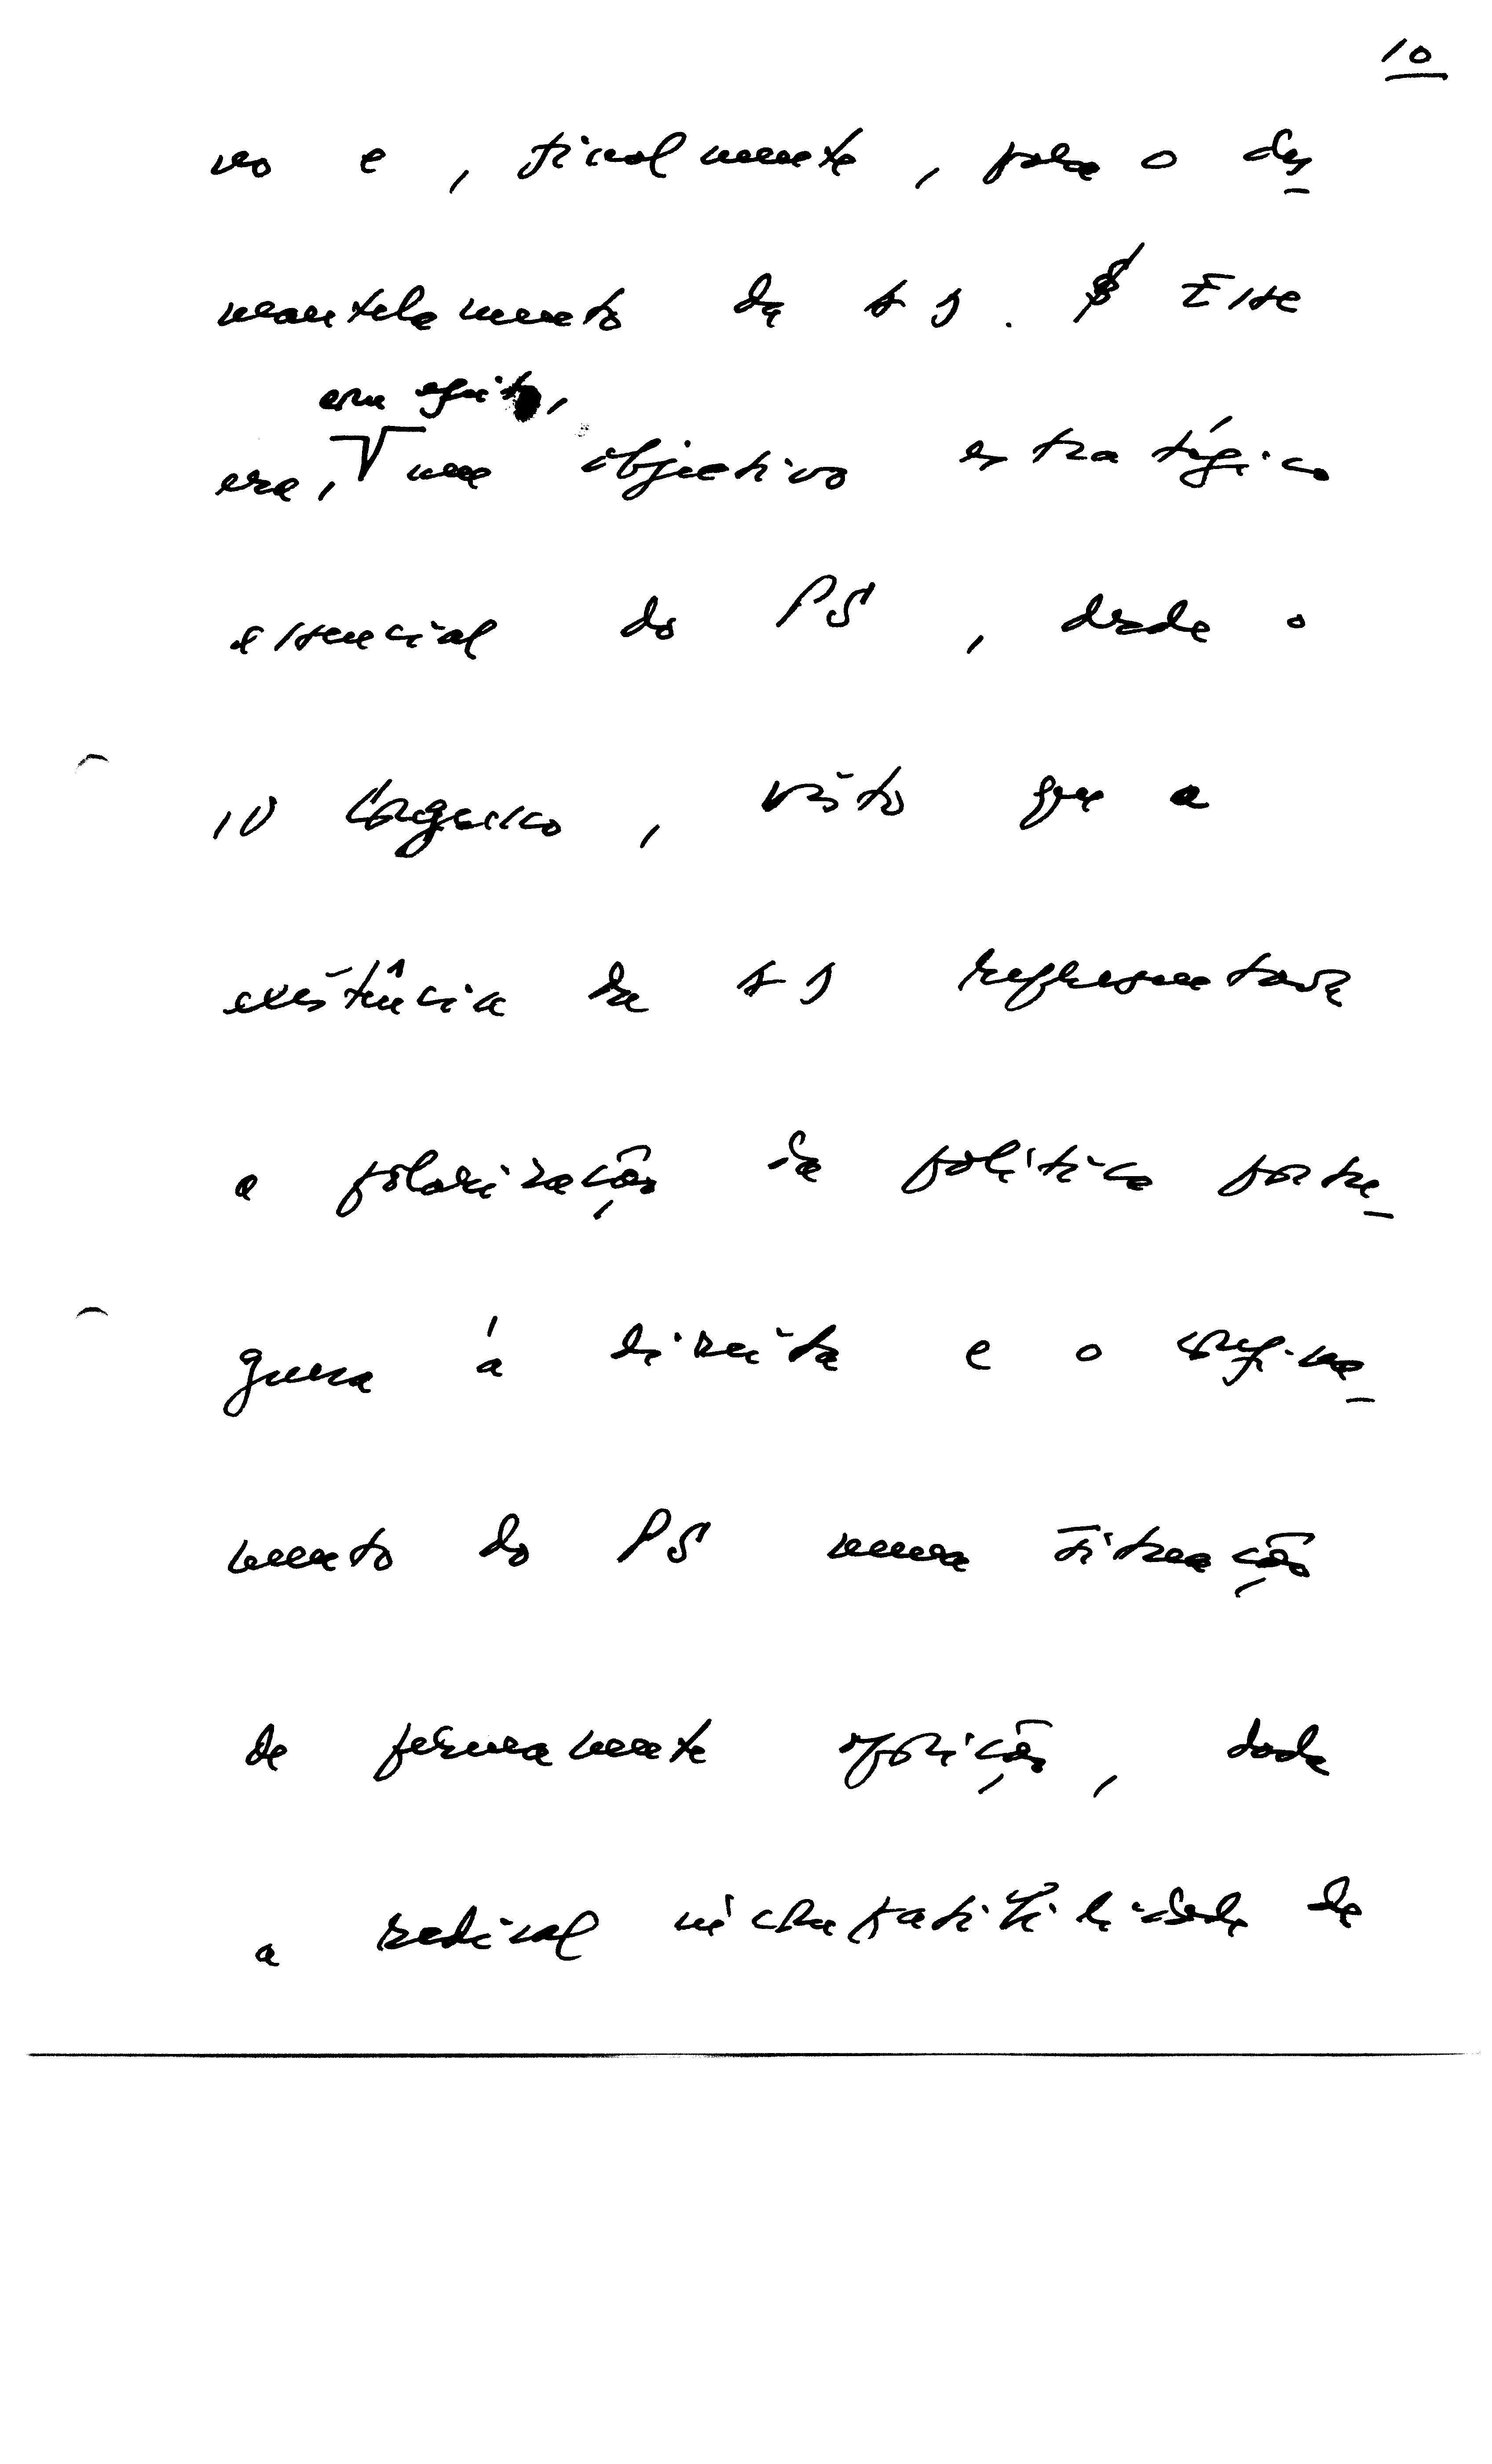 10
vo e, finalmente, para o des-
mantelamento da AD. Esse
em efeito,
era, um objectivo estratégico
essencial do PS, desde o
IV Congresso, visto que a
existência da AD representava
a polarização da política portu-
guesa à direita e o confina-
mento do PS numa situação
de permanente oposição, dada
a radical incompatibilidade de